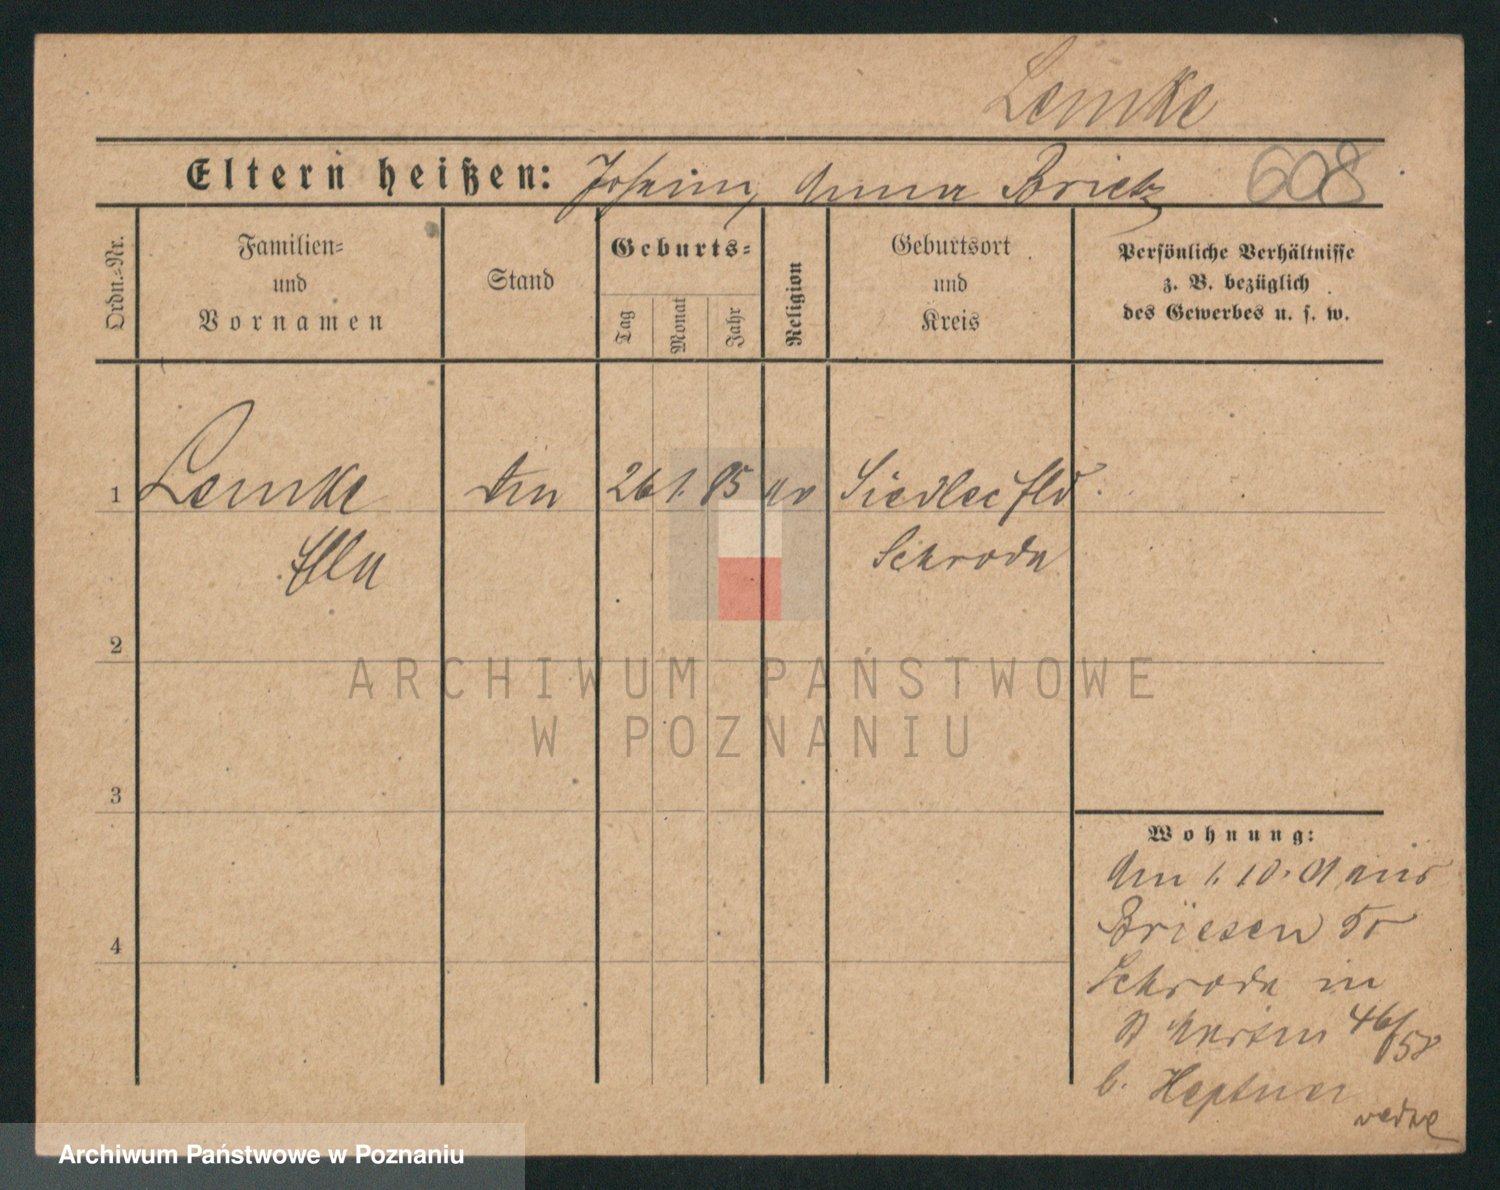 Lemke
Eltern heißen: Johann, Anna Brietz 608
Ordn.=Nr.
Familien=
und
Vornamen
Stand
Geburts=
Tag
Monat
Jahr
Religion
Geburtsort
und
Kreis
Persönliche Verhältnisse
z. B. bezüglich
des Gewerbes u. s. w.
1 Lemke 26 1. 85 ev Siedlec Hld.
Ella Schroda
2
3
4
ARCHIWUM PAŃSTWOWE
W POZNANIU
Wohnung:
Am 1. 10. 01 aus
Briesen Kr
Schroda in
St Martin 46/58
b. Heptner
Archiwum Państwowe w Poznaniu